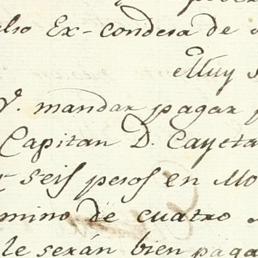 Ex-condesa de
Muy
V. mandar pagar
Capitan D. Cayeta
seis pesos en Mo
mino de cuatro
le serán bien paga